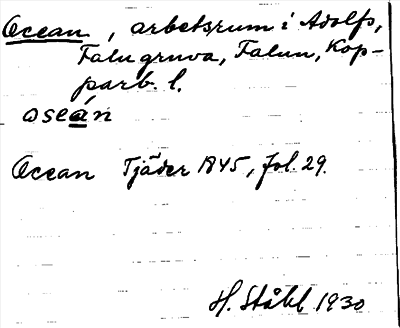 Ocean, arbetsrum i Adolfs,
Falu gruva, Falun, Kop-
parb. l.
oseán
Ocean Tjäder 1845, fol. 29.
H. Ståhl 1930